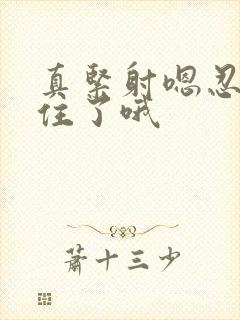 真紧射嗯忍
住了哦
萧十三少